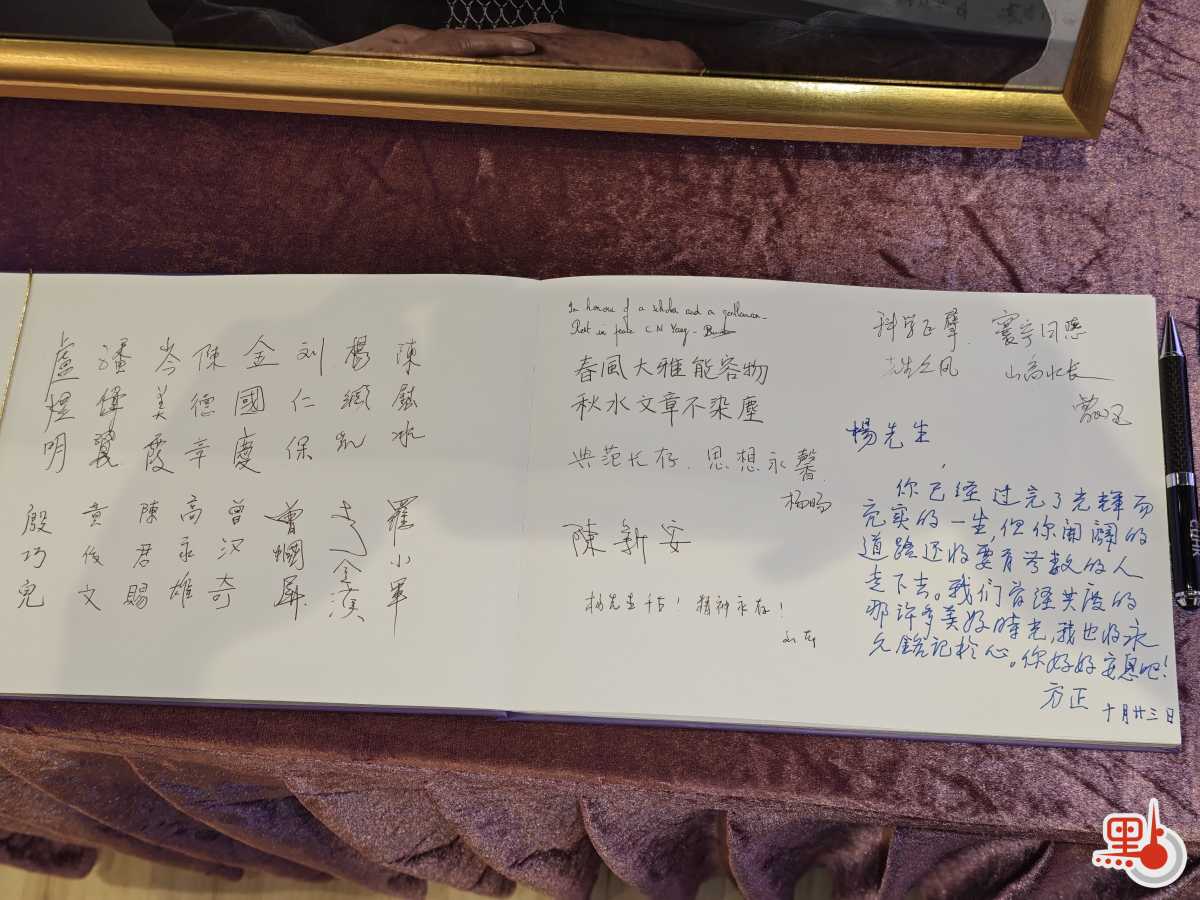 陳
楊綱凱
刘仁保
金國慶
陳德章
岑美霞
潘偉
盧煜明
羅小軍
李金漢
曾屏
曾汉奇
高永雄
陳君賜
黃俊文
殷巧兒
In honour of a scholar and a gentleman.
Rest in peace C N Yang.
春風大雅能容物
秋水文章不染塵
典范长存．思想永馨．
杨旸
陳新安
杨先生千古！精神永存！
科学巨擘．寰宇同悲
先生之风 山高水长
楊先生，
你已经过完了光輝而
充实的一生，但你開闢的
道路还將要有无数的人
走下去。我们曾经共度的
那许多美好時光，我也將永
久銘記於心。你好好安息吧！
方正 十月廿三日
點